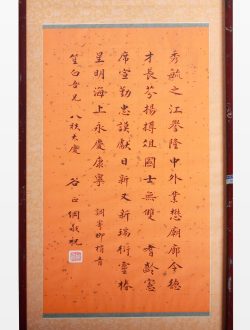 秀毓之江譽隆中外業懋廟廊令德
才長芬揚樽俎國士無雙　耆齡憲
席宣勤忠謨獻日新又新瑞衍靈椿
呈明海上永慶康寧　調寄眼
笙白吾兄八秩大慶
谷正綱敬祝